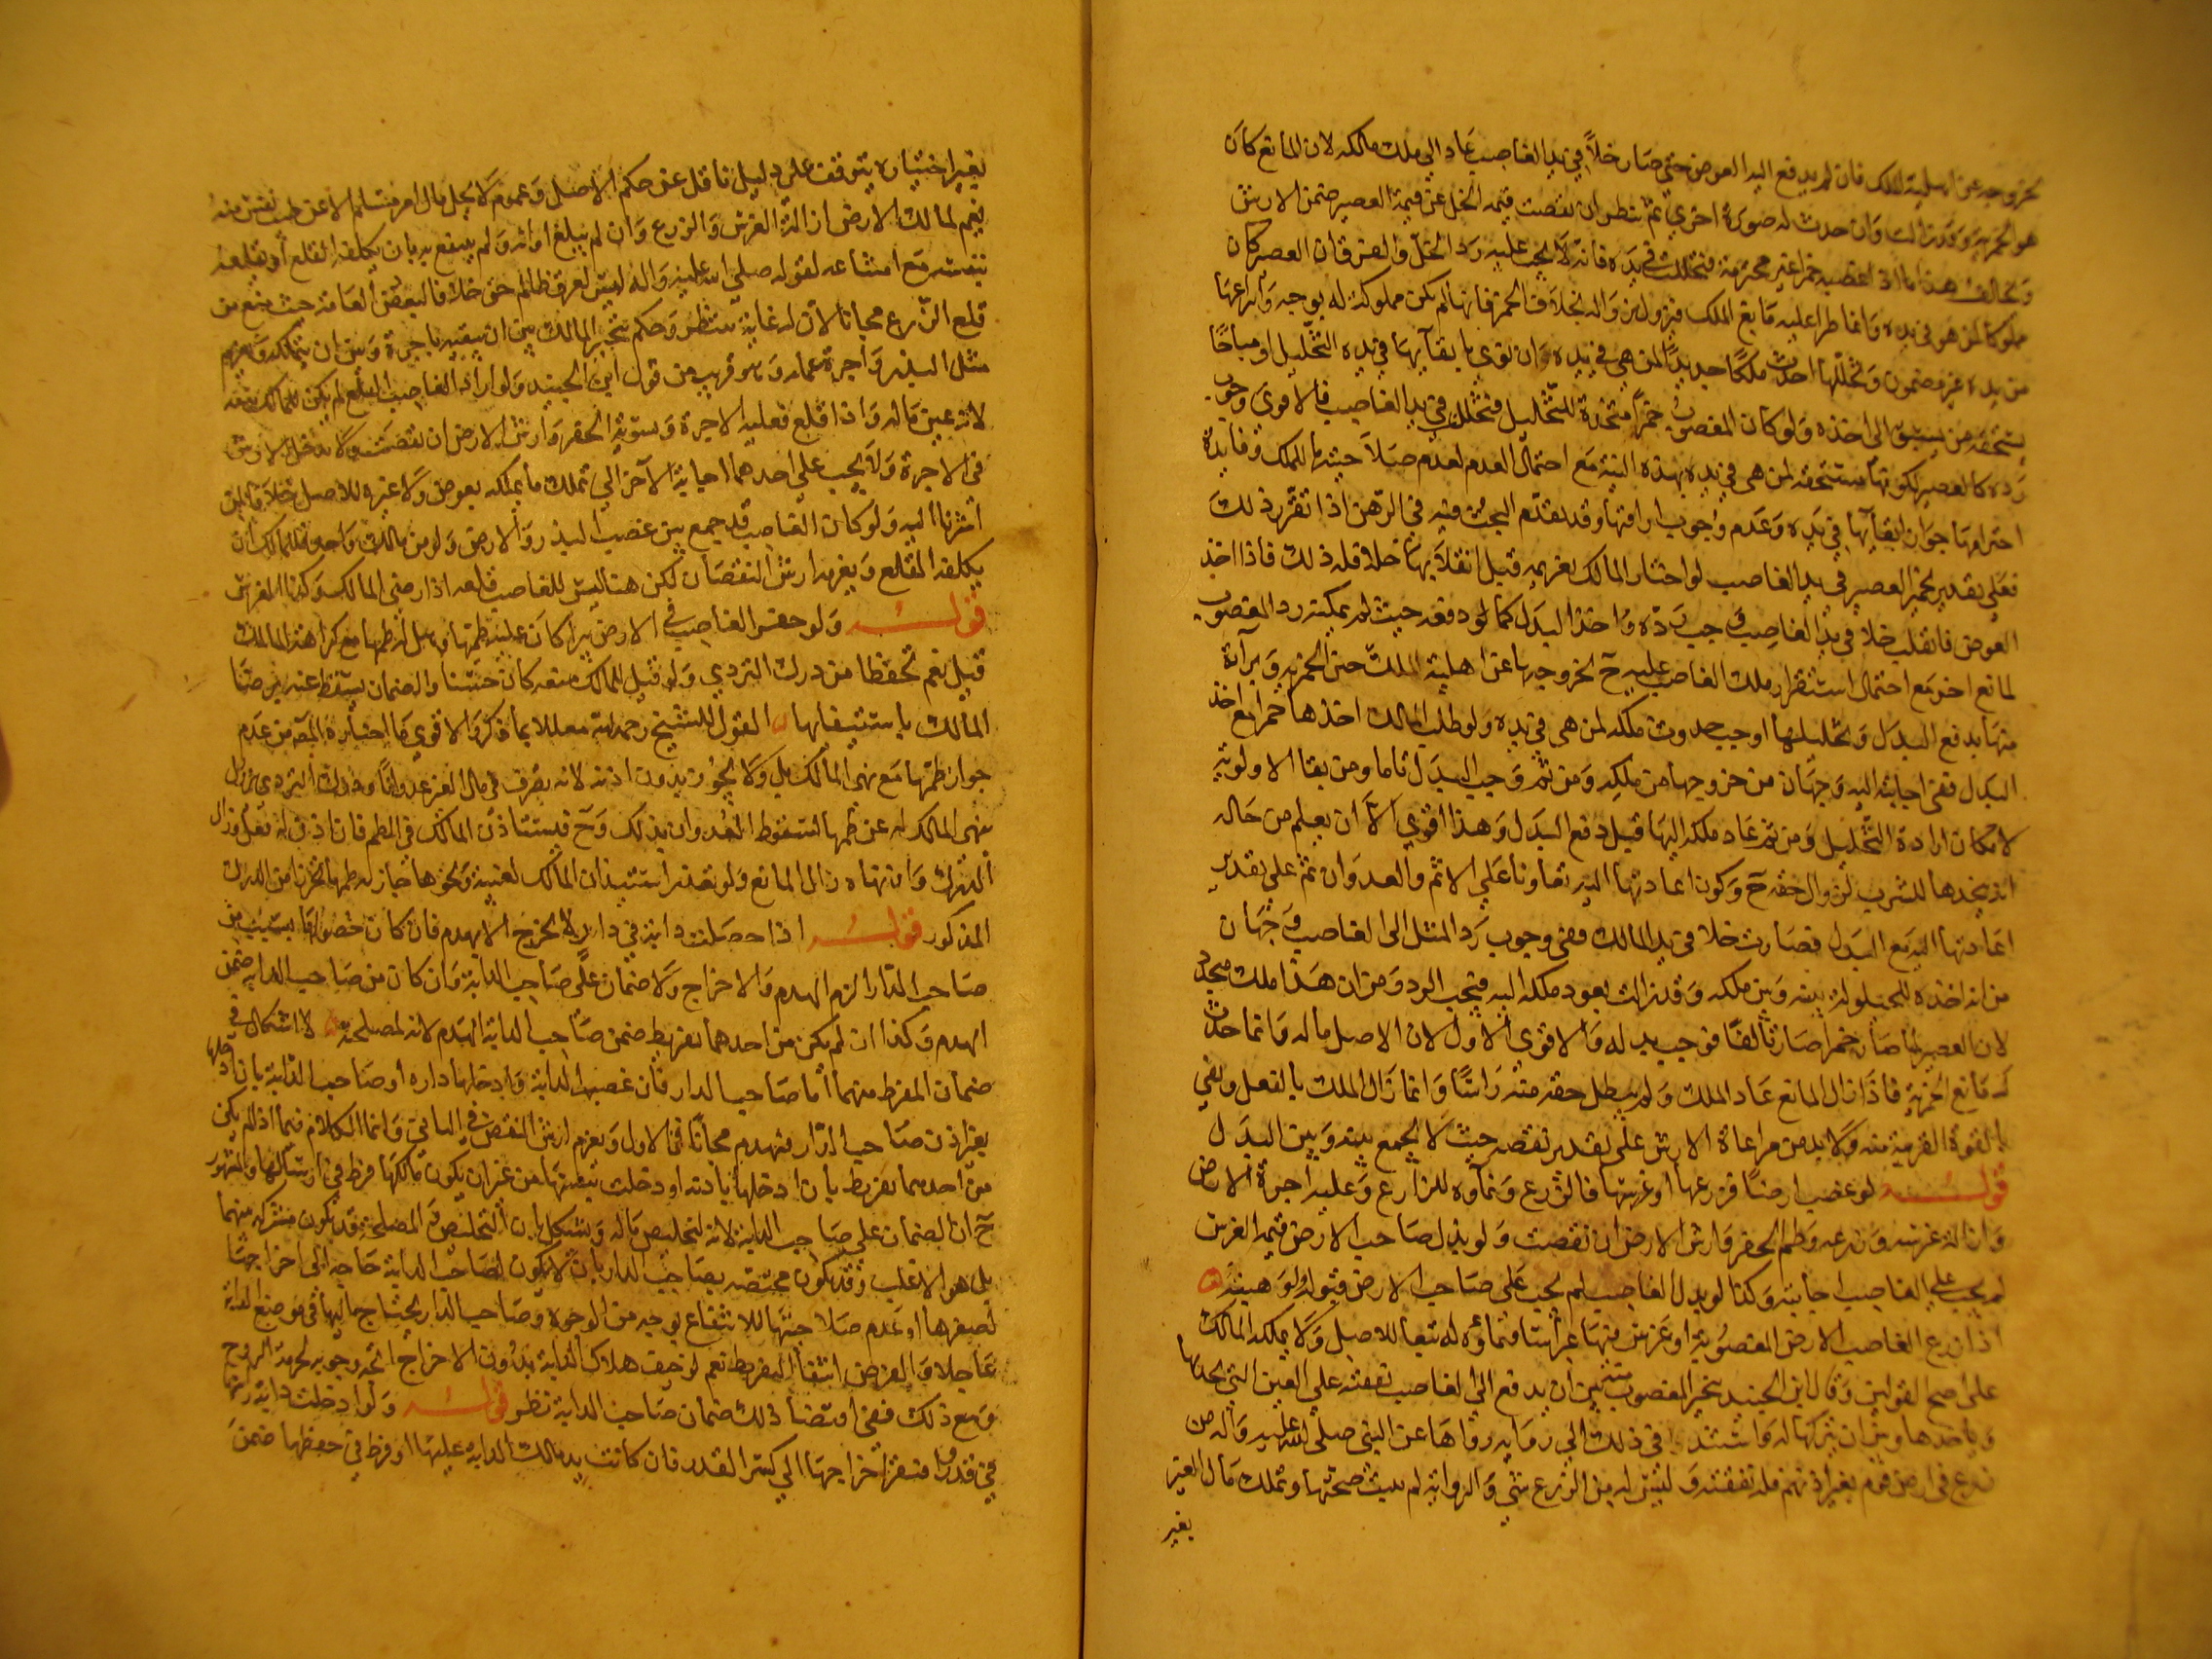 لخروجه عن اهلية الملك فان لم يدفع اليه العوض حتى صار خلاً في يد الغاصب عاد الي ملك مالكه لان المانع كان
هو الخمرية وقد زالت وان حدث له صورة اخري ثم ينظر ان نقصت قيمة الخل عن قيمة العصير ضمن الارش
ويخالف هذا ما اذا غصبه خمرا غير محترمة فتخللت في يده فانه لا يجب عليه رد الخل والفرق ان العصير كان
مملوكا لمن هو في يده وانما طرا عليه مانع الملك فيزول بزواله بخلاف الخمر فانها لم تكن مملوكة له بوجه
من يده غير مضمون وتخللها احدث ملكًا جديدًا لمن هي في يده وان نوى بابقائها في يده التخليل او مباحًا
يستحقه من يسبق الى اخذه ولو كان المغصوب خمرًا متخذة للتخليل فتخللت في يد الغاصب فالاقوى وجوب
رده كالعصير لكونها مستحقة لمن هي في يده بهذه النية مع احتمال العدم لعدم صلاحيتها للملك وفائدة
احترامها جواز ابقائها في يده وعدم وجوب اراقتها وقد تقدم البحث فيه في الرهن اذا تقرر ذلك
فعلى تقدير تخمر العصير في يد الغاصب لو اختار المالك تغريمه قبل انقلابها خلا فله ذلك فاذا اخذ
العوض فانقلب خلا في يد الغاصب وجب رده واخذ البدل كما لو دفعه حيث لم يمكنه رد المغصوب
لمانع اخر مع احتمال استقرار ملك الغاصب عليه ح لخروجها عن اهلية الملك حين الخمرية وبراءة
منها بدفع البدل وتخليلها اوجب حدوث ملك لمن هي في يده ولو طلب المالك اخذها خمرا مع اخذ
البدل ففي اجابته اليه وجهان من خروجها من ملكه ومن ثم وجب البدل تاما ومن بقا الاولوية
لامكان ارادة التخليل ومن ثم عاد ملكه اليها قبل دفع البدل وهذا اقوي الا ان يعلم من حاله
انه يتخذها للشرب لزوال حقه ح وكون اعادتها اليه تعاونا على الاثم والعدوان ثم على تقدير
اعادتها اليه مع البدل فصارت خلا في يد المالك ففي وجوب رد المثل الى الغاصب وجهان
من انه اخذه للحيلولة بينه وبين ملكه وقد زالت بعود ملكه اليه فيجب الرد ومن ان هذا ملك متجدد
لان العصير لما صار خمرا صار تالفًا فوجب بدله والاقوى الاول لان الاصل ماله وانما حدث
له مانع الخمرية فاذا زال المانع عاد الملك ولم يبطل حقه منه راسًا وانما زال الملك بالفعل وبقي
بالقوة القريبة منه ولا بد من مراعاة الارش على تقدير نقصه حيث لا يجمع بينه وبين البدل
قوله لو غصب ارضًا فزرعها او غرسها فالزرع ونماؤه للزارع وعليه اجرة الارض
وازالة غرسه وزرعه وطم الحفر وارش الارض ان نقصت ولو بذل صاحب الارض قيمة الغرس
لم يجب على الغاصب اجابته وكذا لو بذل الغاصب لم يجب على صاحب الارض قبوله ولو هبةً
اذا زرع الغاصب الارض المغصوبة او غرس فيها غرسًا فنماؤه له تبعا للاصل ولا يملكه المالك
على اصح القولين وقال ابن الجنيد يتخير المغصوب منه بين ان يدفع الى الغاصب نفقته على العين التي
وياخذها وبين ان يتركها له واستند في ذلك الى رواية رواها عن النبي صلى الله عليه وآله من
زرع في ارض قوم بغير اذنهم فله نفقته وليس له من الزرع شي والرواية لم يثبت صحتها وتملك مال الغير
بغير
بغير اختياره يتوقف على دليل ناقل عن حكم الاصل وعموم لا يحل مال امرء مسلم الا عن طيب نفس منه
نعم لمالك الارض ازالة الغرس والزرع وان لم يبلغ اوانه ولم ينتفع به بان يكلفه القلع او يقلعه
بنفسه مع امتناعه لقوله صلى الله عليه وآله ليس لعرق ظالم حق خلافا لبعض العامة حيث منع من
قلع الزرع مجانا لان له غاية ينتظر وحكم بتخير المالك بين ان يبقيه باجرة وبين ان يتملكه ويغرم
مثل البذر واجرة عمله وهو قريب من قول ابن الجنيد ولو اراد الغاصب القلع لم يكن للمالك منعه
لانه عين ماله واذا قلع فعليه الاجرة وتسوية الحفر وارش الارض ان نقصت ولا يدخل الارش
في الاجرة ولا يجب على احدهما اجابة الآخر الى تملك ما يملكه بعوض ولا غيره للاصل خلافا لمن
اشرنا اليه ولو كان الغاصب قد جمع بين غصب البذر والارض ولو من مالك واحد فللمالك ان
يكلفه القلع ويغرمه ارش النقصان لكن هنا ليس للغاصب قلعه اذا رضي المالك وكذا الغرس
قوله ولو حفر الغاصب في الارض بيرا كان عليه طمها وهل له طمها مع كراهة المالك
قيل نعم تحفظا من درك التردي ولو قيل للمالك منعه كان حسنا والضمان يسقط عنه برضا
المالك باستبقائها القول للشيخ رحمه الله معللا بما ذكر والاقوي ما اختاره المصـ من عدم
جواز طمها مع نهي المالك بل ولا يجوز بدون اذنه لانه تصرف في مال الغير عدوانًا ودرك التردي يزول
بنهي المالك له عن طمها لسقوط التعدوان بذلك وح فيستاذن المالك في الطم فان اذن له فعل وزال
الدرك وان نهاه زال المانع ولو تعذر استيذان المالك لغيبة ونحوها جاز له طمها تحرزا من الدرك
المذكور قوله اذا حصلت دابة في دار لا تخرج الا بهدم فان كان حصولها بسبب من
صاحب الدار الزم الهدم والاخراج ولا ضمان على صاحب الدابة وان كان من صاحب الدابة ضمن
الهدم وكذا ان لم يكن من احدهما تفريط ضمن صاحب الدابة الهدم لانه لمصلحته لا اشكال في
ضمان المفرط منهما اما صاحب الدار فبأن غصب الدابة وادخلها داره او صاحب الدابة بان ادخلها
بغير اذن صاحب الدار فيهدم مجانًا في الاول ويغرم ارش النقص في الثاني وانما الكلام فيما اذا لم يكن
من احدهما تفريط بان ادخلها باذنه او دخلت بنفسها من غير ان يكون مالكها فرط في ارسالها والمشهور
ح ان الضمان على صاحب الدابة لانه لتخليص ماله ويشكل بان التخليص قد المصلحة قد تكون مشتركة بينهما
بل هو الاغلب وقد يكون مختصة بصاحب الدار بان لا يكون لصاحب الدابة حاجة الى اخراجها
لصغرها او عدم صلاحيتها للانتفاع بوجه من الوجوه وصاحب الدار يحتاج اليها في موضع الدابة
عاجلا والفرض انتفا التفريط نعم لو خيف هلاك الدابة بدون الاخراج اتجه وجوبه لحرمة الروح
ومع ذلك ففي اقتضا ذلك ضمان صاحب الدابة نظر قوله ولو ادخلت دابة راسها
في قدر وافتقر اخراجها الي كسر القدر فان كانت يد مالك الدابه عليها او فرط في حفظها ضمن